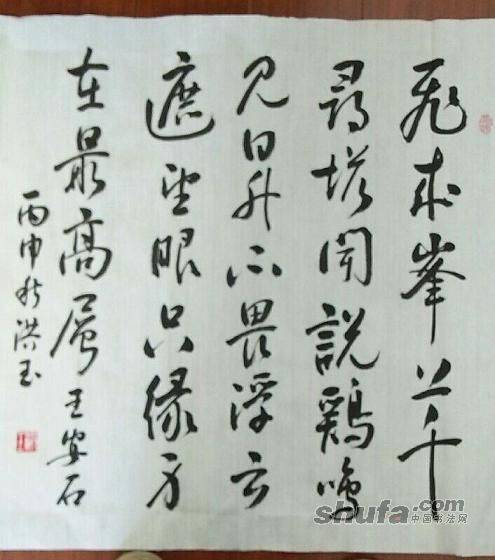 飛来峯上千
尋塔聞說鷄鳴
见日升不畏浮云
遮望眼只緣身
在最高層王安石
丙申秋洪玉
shufa.com
中国书法网